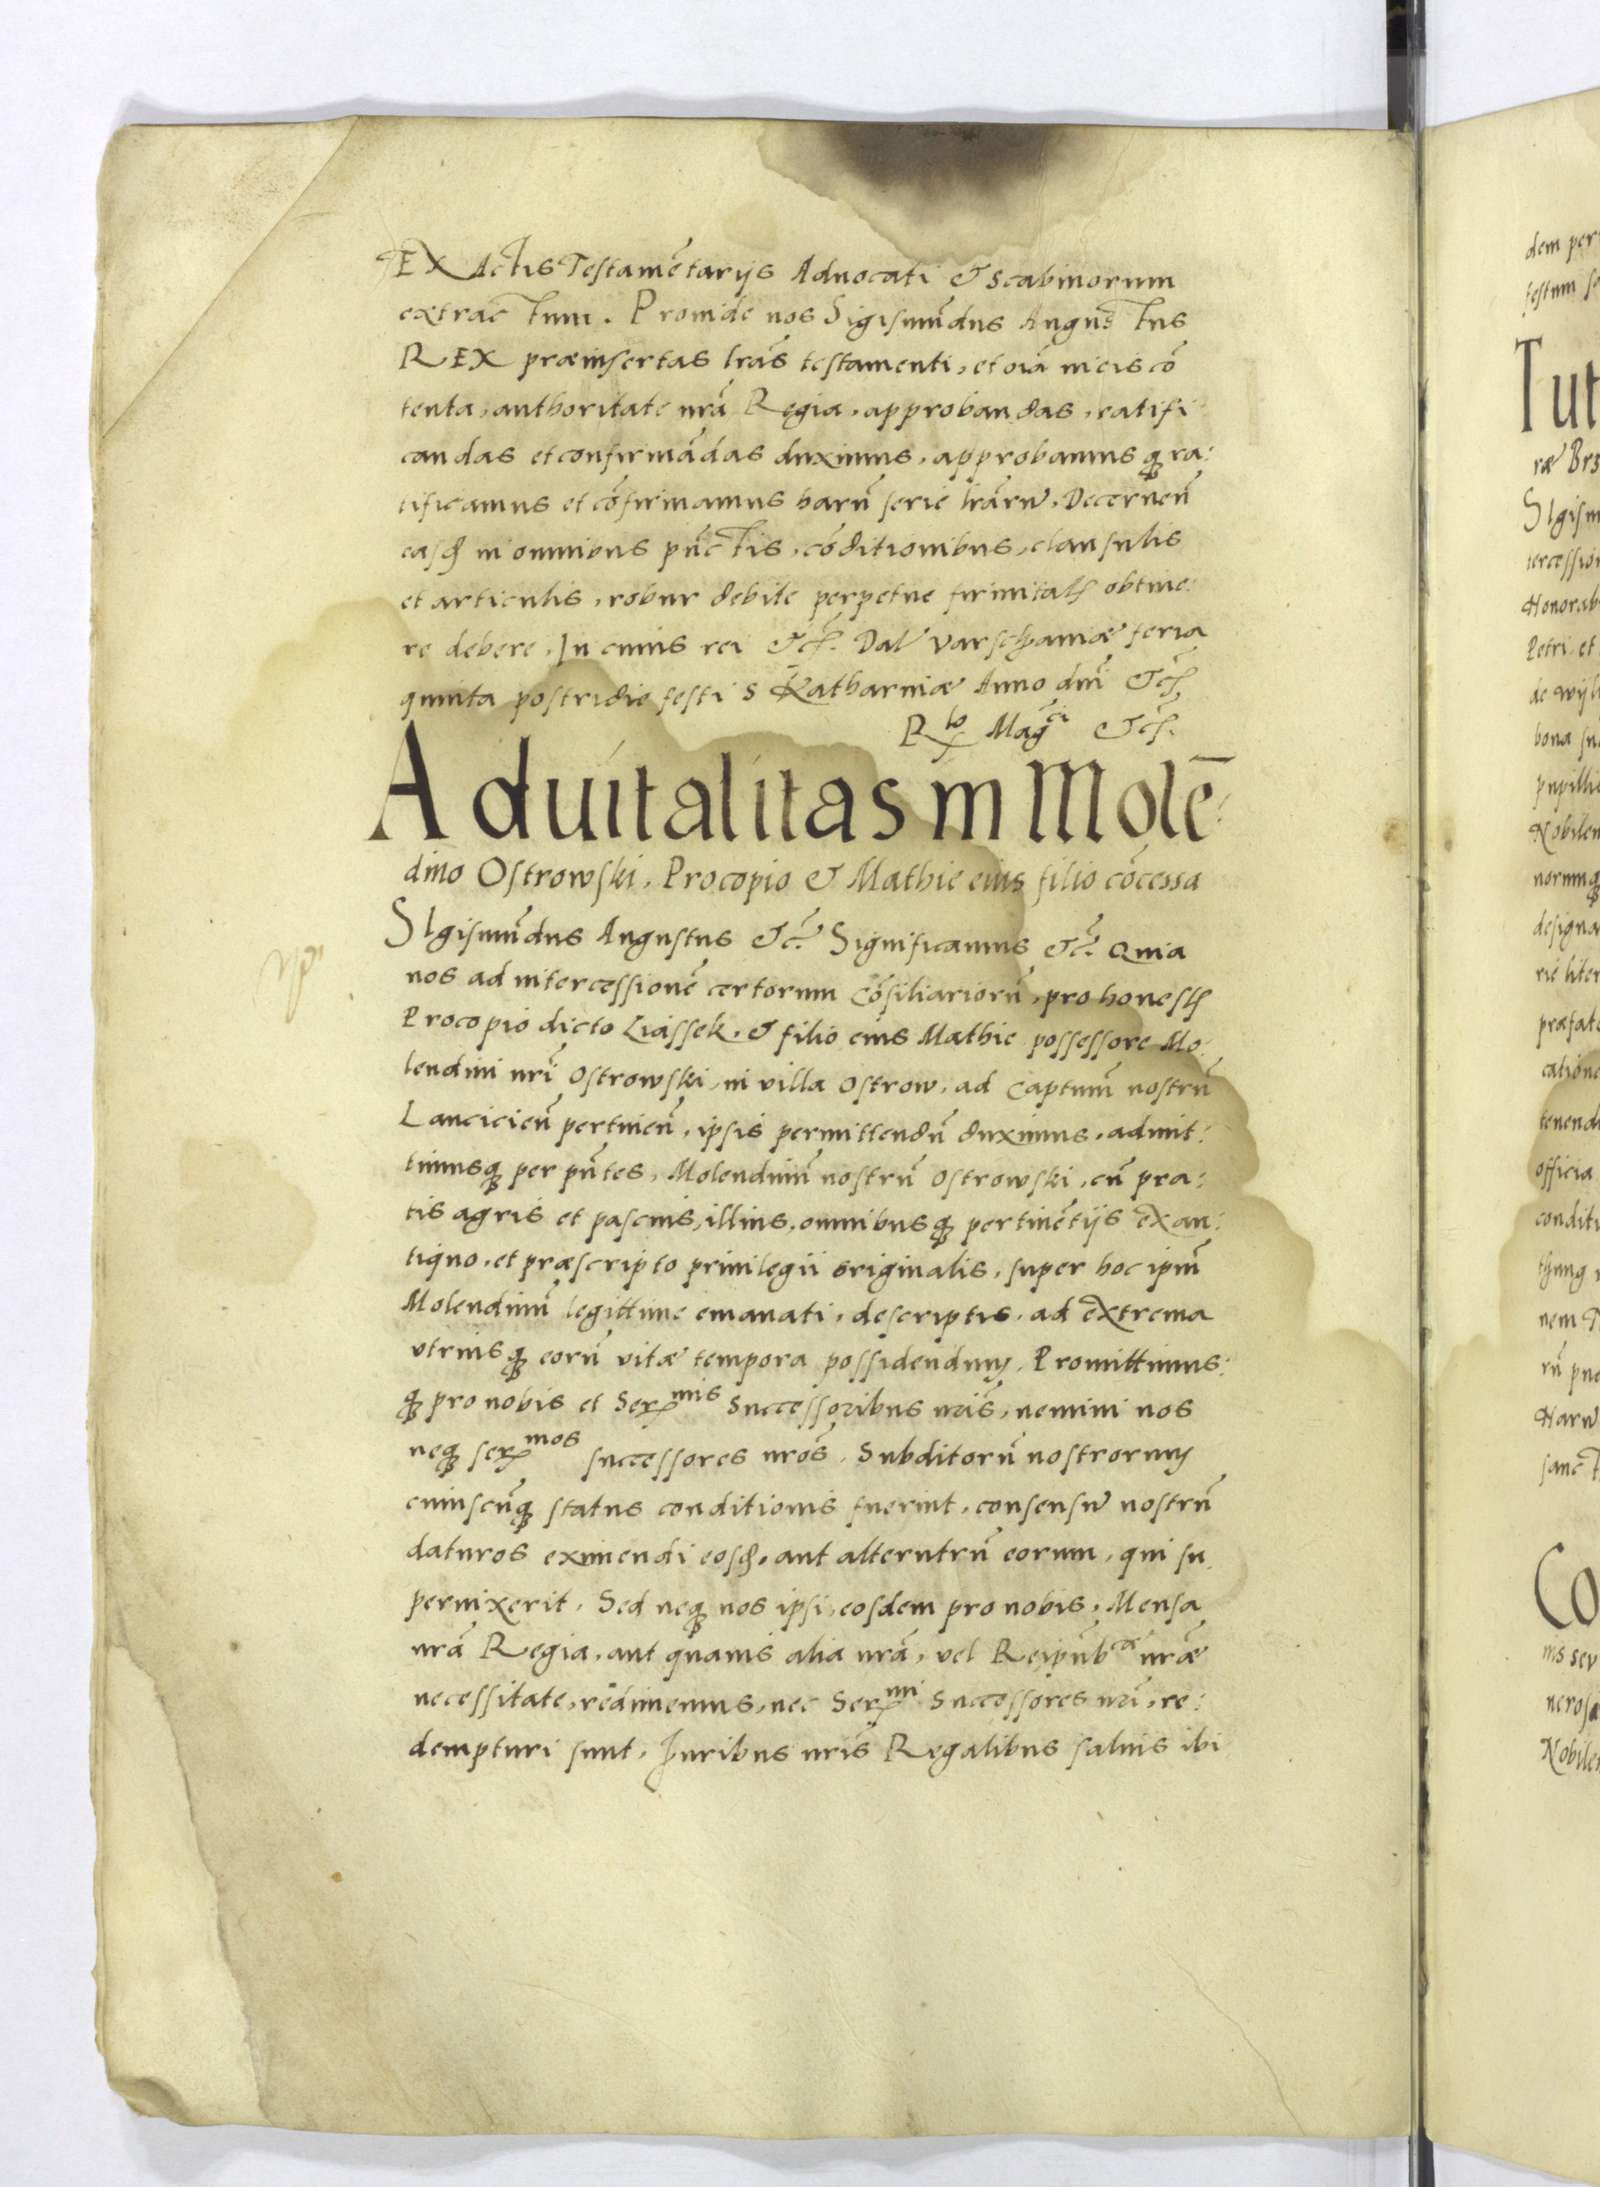 EX Actis Testamētarijs Aduocati & Scabinorum
extractum. Prouide nos Sigismūdus Augustus
REX præinsertas lrās testamenti, et oīa in eis cō
tenta, authoritate nrā Regia, approbandas, ratifi
candas et confirmādas duximus, approbamusq̃ ra:
tificamus et cōfirmamus harū serie lrārū. Decerneñ
easq̃ in omnibus pūctis, cōditionibus, clausulis
et articulis, robur debite perpetue firmitat̃ obtine:
re debere. In cuius rei &c̃. Dat̃ Varschauiæ feria
quinta postridie festi S Katharinæ Anno dnī &c̃
R^lo Mag^ci &c̃.
Aduitalitas in Molē:
dino Ostrowski, Procopio & Mathie eius filio cōcessa
SIgismūdus Augustus &c̃. Significamus &c̃. Quia
nos ad intercessionē certorum Cōsiliariorū, pro honest̃
Procopio dicto Liassek, & filio eius Mathie possessore Mo:
lendini nrī Ostrowski, in villa Ostrow, ad Captum̄ nostrū
Lancicieñ pertineñ, ipsis permittendū duximus, admit:
timusq̃ per pñtes, Molendinū nostrū Ostrowski, cū pra:
tis agris et pascuis, illius, omnibusq̃ pertinētijs ex an:
tiquo, et præscripto priuilegii originalis, super hoc ipm̄
Molendinū legittime emanati, descriptis, ad extrema
vtriusq̃ eorū vitæ tempora possidendum. Promittimus:
q̃ pro nobis et Ser^mis Successoribus nrīs, nemini nos
neq̃ ser^mos successores nrōs, Subditorū nostrorum
cuiuscūq̃ status conditionis fuerint, consensū nostrū
daturos eximendi eosd̃, aut alterutrū eorum, qui su
peruixerit. Sed neq̃ nos ipsi, eosdem pro nobis, Mensa
nrā Regia, aut quauis alia nrā, vel Reipub^cæ nræ
necessitate, redimemus, nec Ser^mi Successores nrī, re:
dempturi sunt. Juribus nrīs Regalibus saluis ibi
dem per
festum sa
Tut
ræ Brz
SIgism
tercession
Honorab
Petri et
de wijl
bona su
pupillis
Nobilem
norumq̃
designa
rie liter
præfato
catione
tenendi
officia
conditi
nem
rū pue
Harū
sanct
Co
nerosa
Nobile